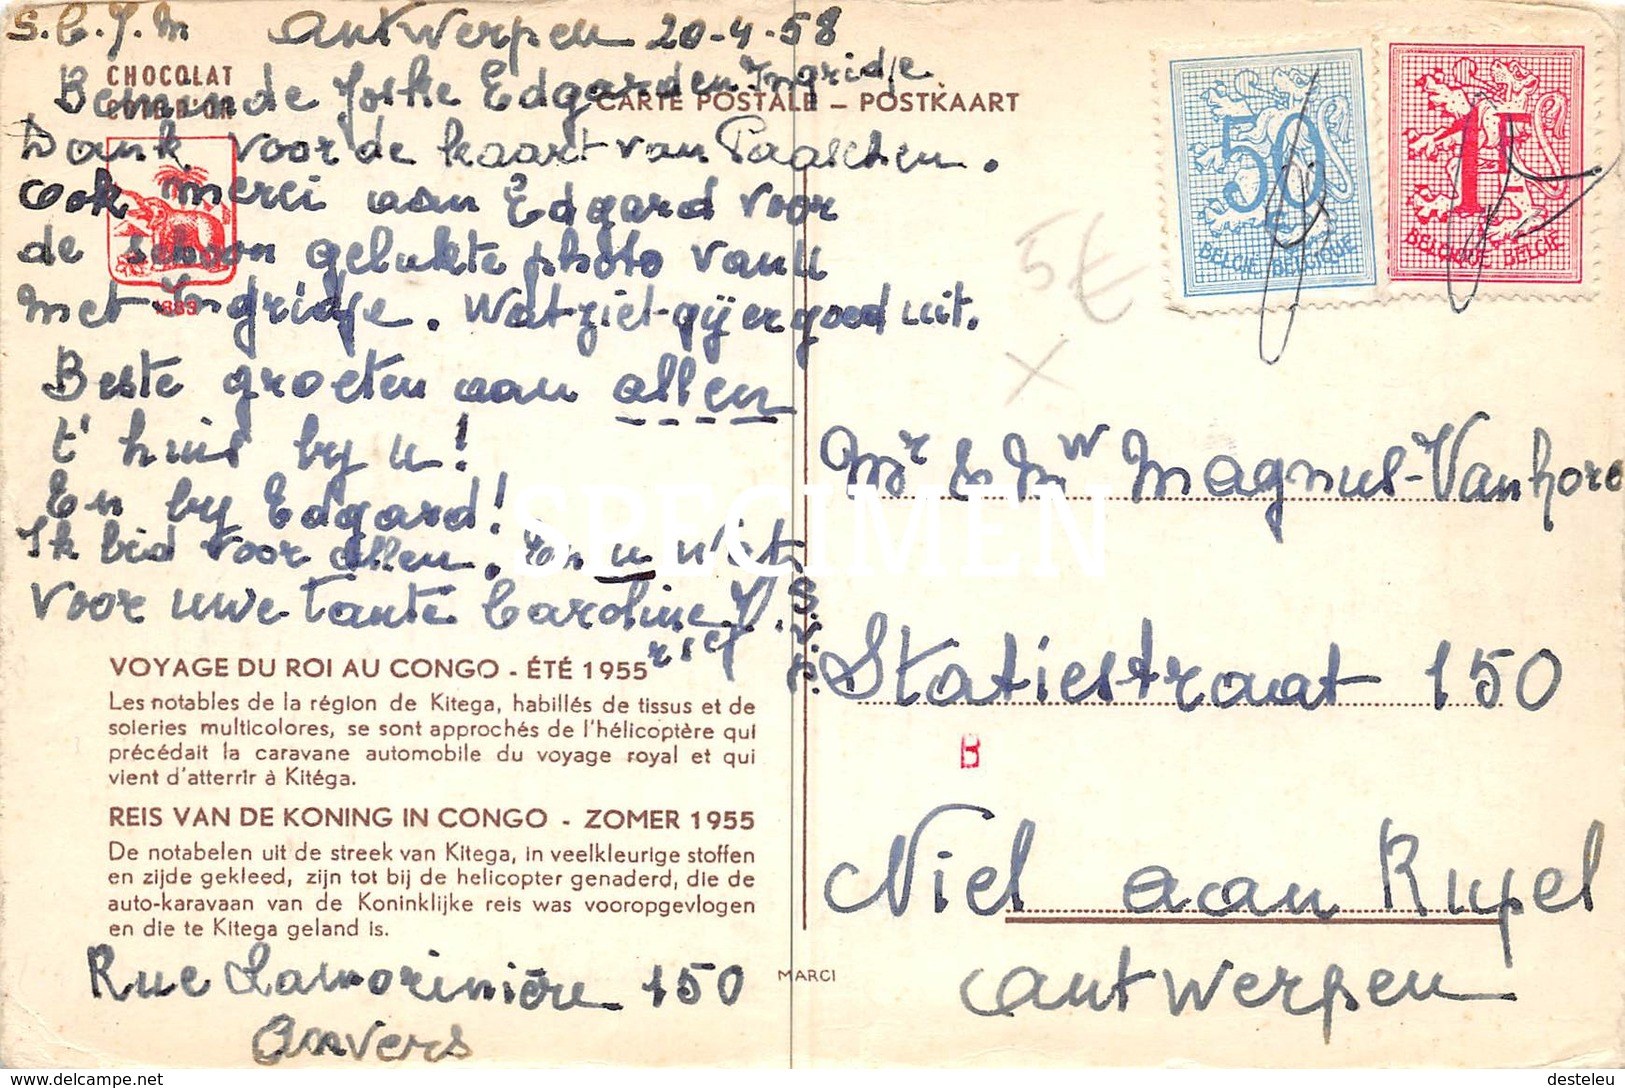 Antwerpen 20-4-58
CHOCOLAT
CÔTE D'OR
Beminde Joske Edgard en Ingridje
CARTE POSTALE – POSTKAART
Dank voor de kaart van Paaschen.
Ook merci aan Edgard voor
de schoon gelukte photo van u
1883
met Ingridje. Wat ziet gij er goed uit.
Beste groeten aan allen
t'huis by u!
En by Edgard!
Ik bid voor allen. En u
voor uwe Tante Caroline
50
BELGIË-BELGIQUE
1F
BELGIQUE-BELGIË
5€
x
Mr & Mw Magnus-Vanhore
Statiestraat 150
B
Niel aan Rupel
Antwerpen
SPECIMEN
VOYAGE DU ROI AU CONGO - ÉTÉ 1955
Les notables de la région de Kitega, habillés de tissus et de
soieries multicolores, se sont approchés de l'hélicoptère qui
précédait la caravane automobile du voyage royal et qui
vient d'atterrir à Kitéga.
REIS VAN DE KONING IN CONGO - ZOMER 1955
De notabelen uit de streek van Kitega, in veelkleurige stoffen
en zijde gekleed, zijn tot bij de helicopter genaderd, die de
auto-karavaan van de Koninklijke reis was vooropgevlogen
en die te Kitega geland is.
MARCI
Rue Lamorinière 150
Anvers
©delcampe.net
desteleu